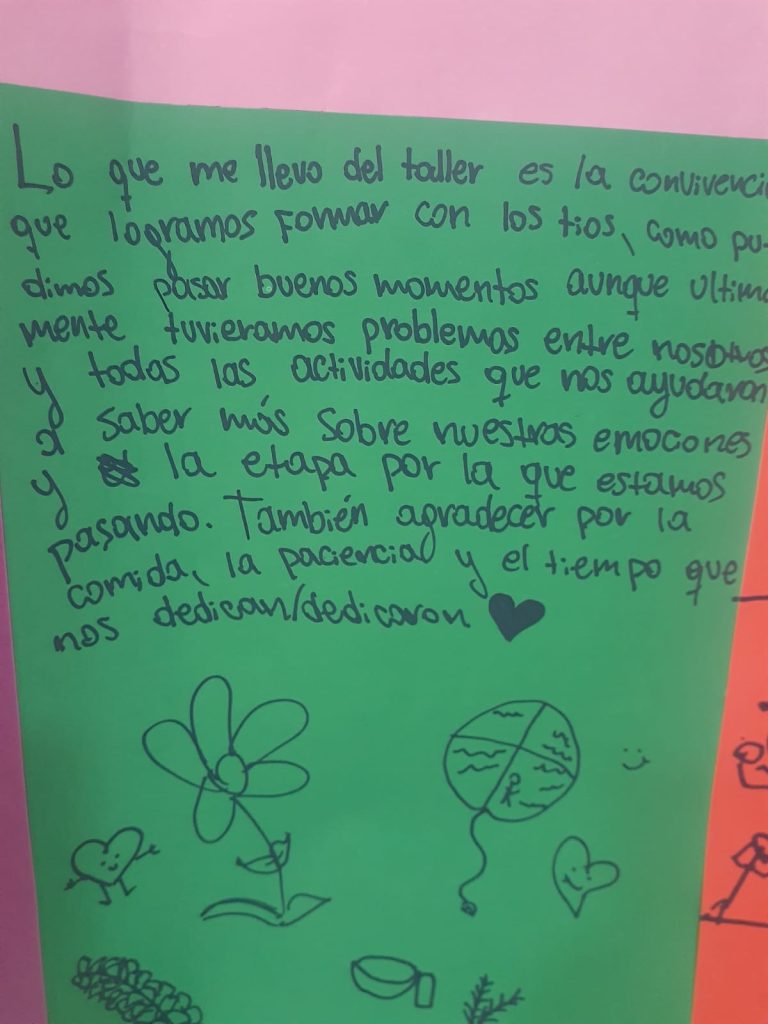 Lo que me llevo del taller es la convivenci
que logramos formar con los tios, como pu-
dimos pasar buenos momentos aunque ultima
mente tuvieramos problemas entre nosotros
y todas las actividades que nos ayudaron
a saber más sobre nuestras emocones
y la etapa por la que estamos
pasando. También agradecer por la
comida, la paciencia y el tiempo que
nos dedican/dedicaron